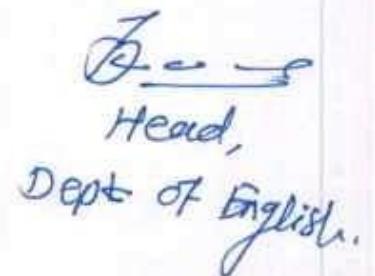 Head,
Dept of English.